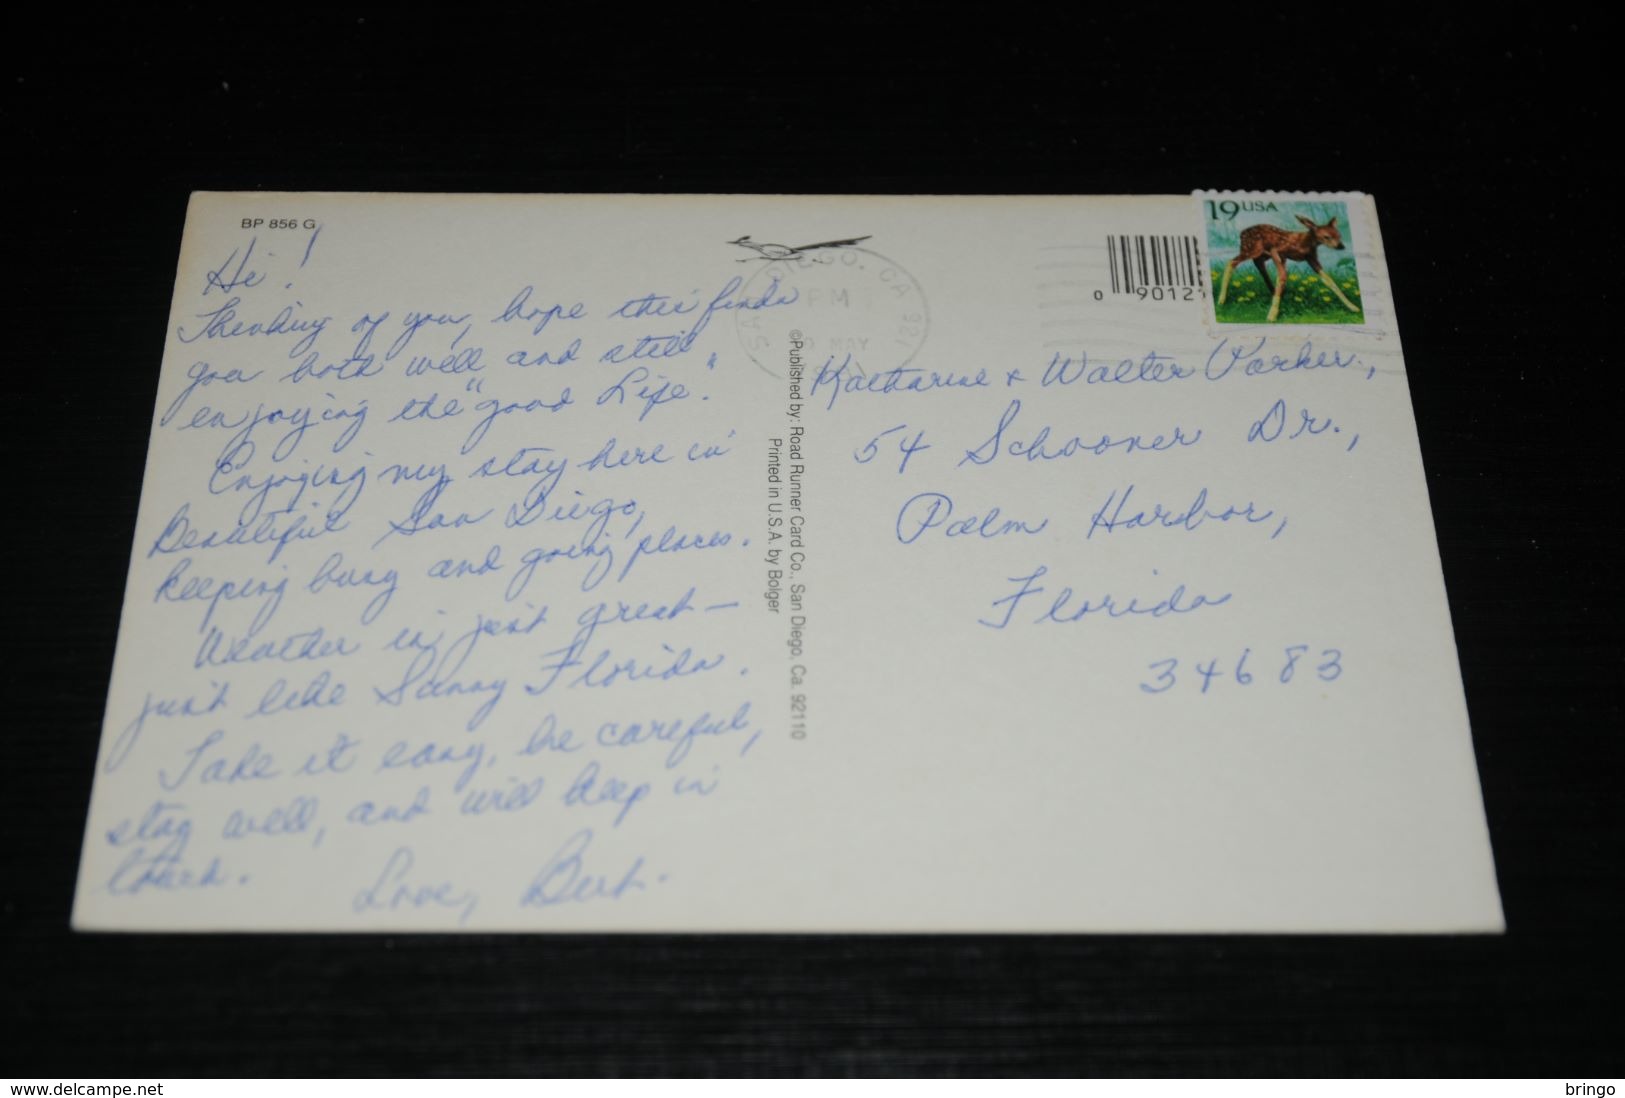 BP 856 G
Hi!
Thinking of you, hope this finds
you both well and still
enjoying the "good Life."
Enjoying my stay here in
Beautiful San Diego,
keeping busy and going places.
Weather is just great –
just like Sunny Florida.
Take it easy, be careful,
stay well, and will keep in
touch.
Love, Bert.
©Published by: Road Runner Card Co., San Diego, Ca. 92110
Printed in U.S.A. by Bolger
DIEGO, CA 921
PM
MAY
0 90121
19 USA
Katharine + Walter Parker,
54 Schooner Dr.,
Palm Harbor,
Florida
34683
delcampe.net
bringo